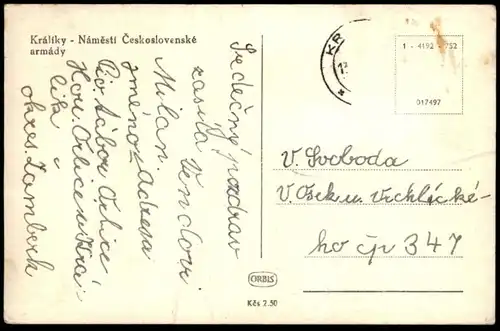 Králíky - Náměstí Československé
armády
Srdečný pozdrav
zasílá Vendovi
Milan.
jméno adresa
Pio. tábor Orlice
Hor. Orlice u Krá-
lík
okres. Žamberk
KR
1 - 4192 - 752
017497
V. Svoboda
V. Vrchlické-
ho čp 347
ORBIS
Kčs 2.50